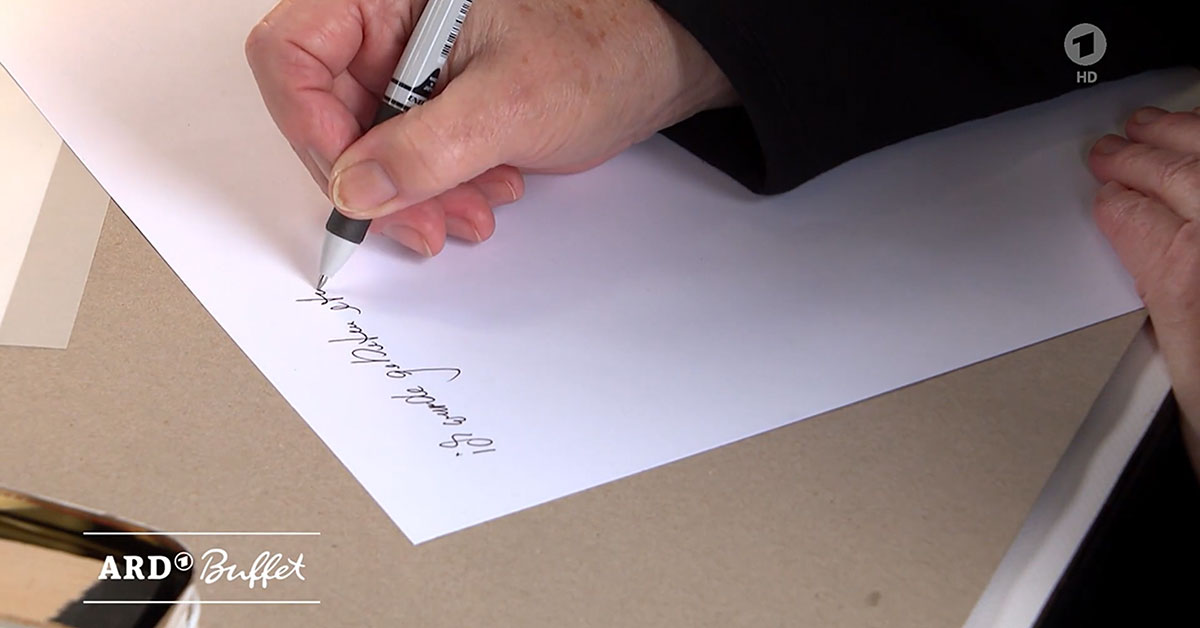 1
HD
ich wurde gebeten etw
ARD 1 Buffet